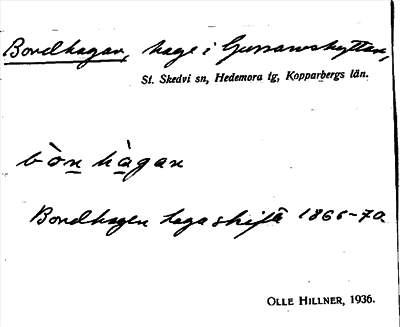 Bondhagen, hage i Gussarvshyttan,
St. Skedvi sn, Hedemora tg, Kopparbergs län.
bòn hàgan
Bondhagen laga skifte 1866-70
OLLE HILLNER, 1936.